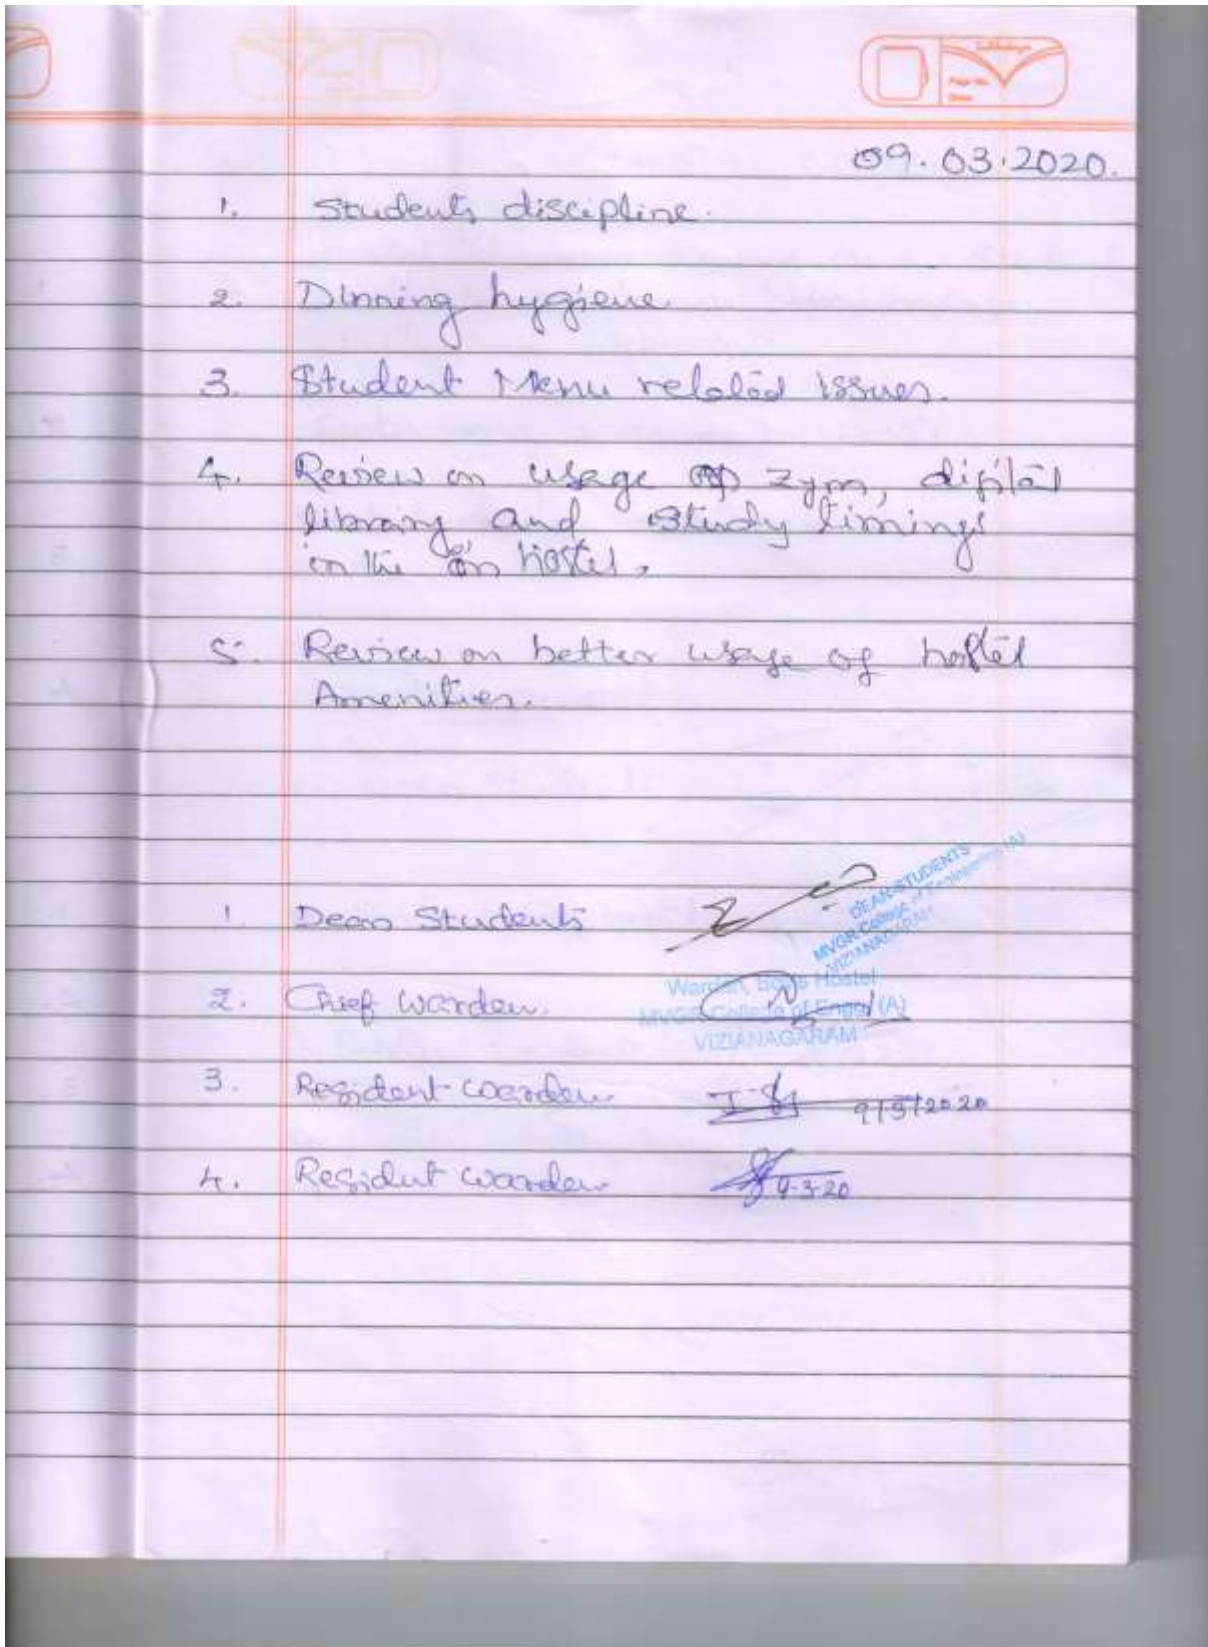 09.03.2020.
1. Students discipline.
2. Dinning hygiene
3. Student Menu related issues.
4. Review on usage of zym, digital
library, and study timings
in the on hostel.
5. Review on better usage of hostel
Amenities.
DEAN-STUDENTS
MVGR College of Engineering (A)
VIZIANAGARAM
1. Dean Students
Warden, Boys Hostel
2. Chief Warden.
MVGR College of Engg. (A)
VIZIANAGARAM
3. Resident warden 9/3/2020
4. Resident warden 9-3-20